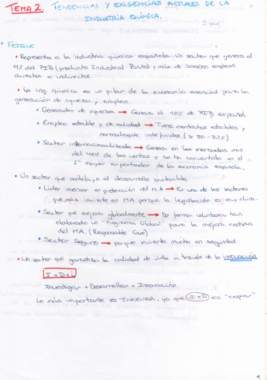 TEMA 2. TENDENCIAS Y EXIGENCIAS ACTUALES DE LA
INDUSTRIA QUÍMICA.
• FEIQUE
• Representa a la industria química española. Un sector que genera el
11% del PIB (producto Industrial Bruto) y más de 500000 empleos
directos e indirectos
• La ing. química es un pilar de la economía esencial para la
generación de riquezas y empleo.
• Generador de riquezas → Genera el 10% de PIB español.
• Empleo estable y de calidad → Tiene contratos estables y
normalmente indefinidos
• Sector internacionalizado → Genera en los mercados más
del 40% de las ventas y se ha convertido en el
mayor exportador de la economía española.
• Un sector que contribuye al desarrollo sostenible
• Líder inversor en protección del M.A → Es uno de los sectores
que más invierte en MA porque la legislación es muy dura.
• Sector que mejora globalmente → De forma voluntaria han
elaborado un Programa Global para la mejora continua
del MA. (Responsible Care)
• Sector Seguro → porque invierte mucho en seguridad
• Un sector que garantiza la calidad de vida a través de la innovación
I+D+i
Investigación + Desarrollo + Innovación
Lo más importante es Innovar, ya que I+D es "caro"